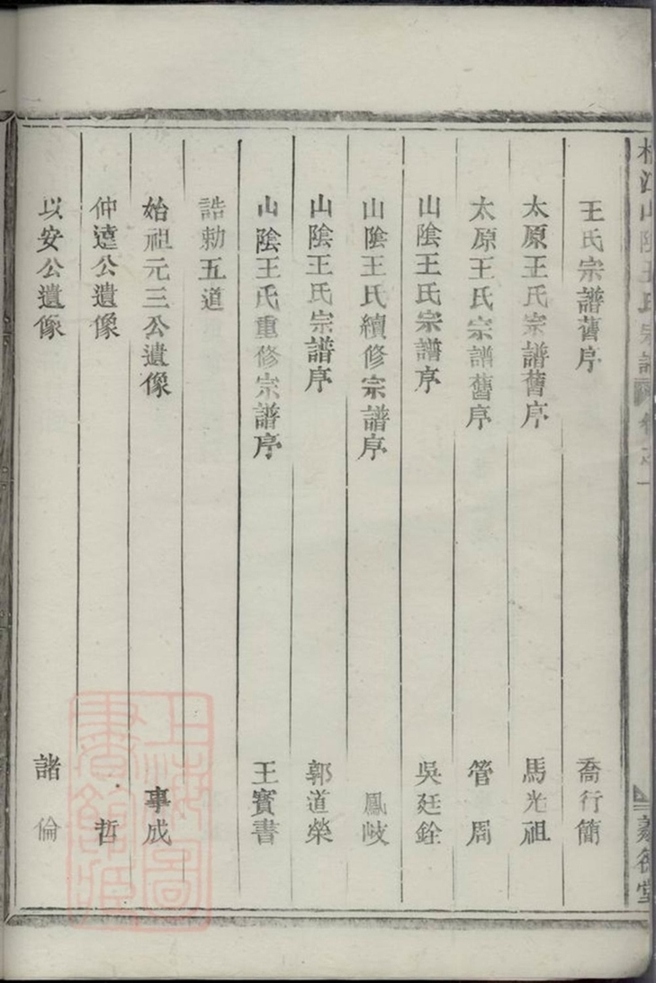 山陰王氏宗譜
王氏宗譜舊序 喬行簡
太原王氏宗譜舊序 馬光祖
太原王氏宗譜舊序 管周
山陰王氏宗譜序 吳廷銓
山陰王氏續修宗譜序 鳳岐
山陰王氏宗譜序 郭道榮
山陰王氏重修宗譜序 王賓書
誥勅五道
始祖元三公遺像 事成
仲達公遺像 哲
以安公遺像 諸倫